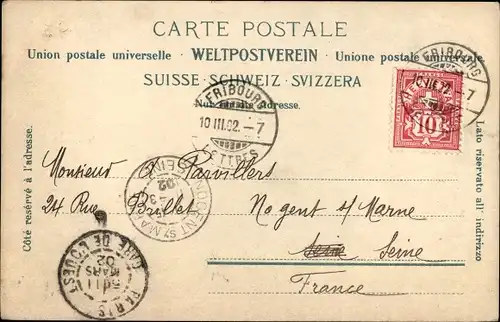 CARTE POSTALE
Union postale universelle. - WELTPOSTVEREIN - Unione postale universale
SUISSE·SCHWEIZ·SVIZZERA
Nur für die Adresse.
FRIBOURG
10 III.02.-7
LETTRES
FRIBOURG
-7
HELVETIA
10
Côté resérvé à l'adresse.
Lato riservato all' indirizzo.
Monsieur A Parvillers
24 Rue Brillet Nogent s/ Marne
Seine Seine
France
NOGENT S/ MARNE
02
PARIS
GARE DE L'OUEST
MARS
02
6